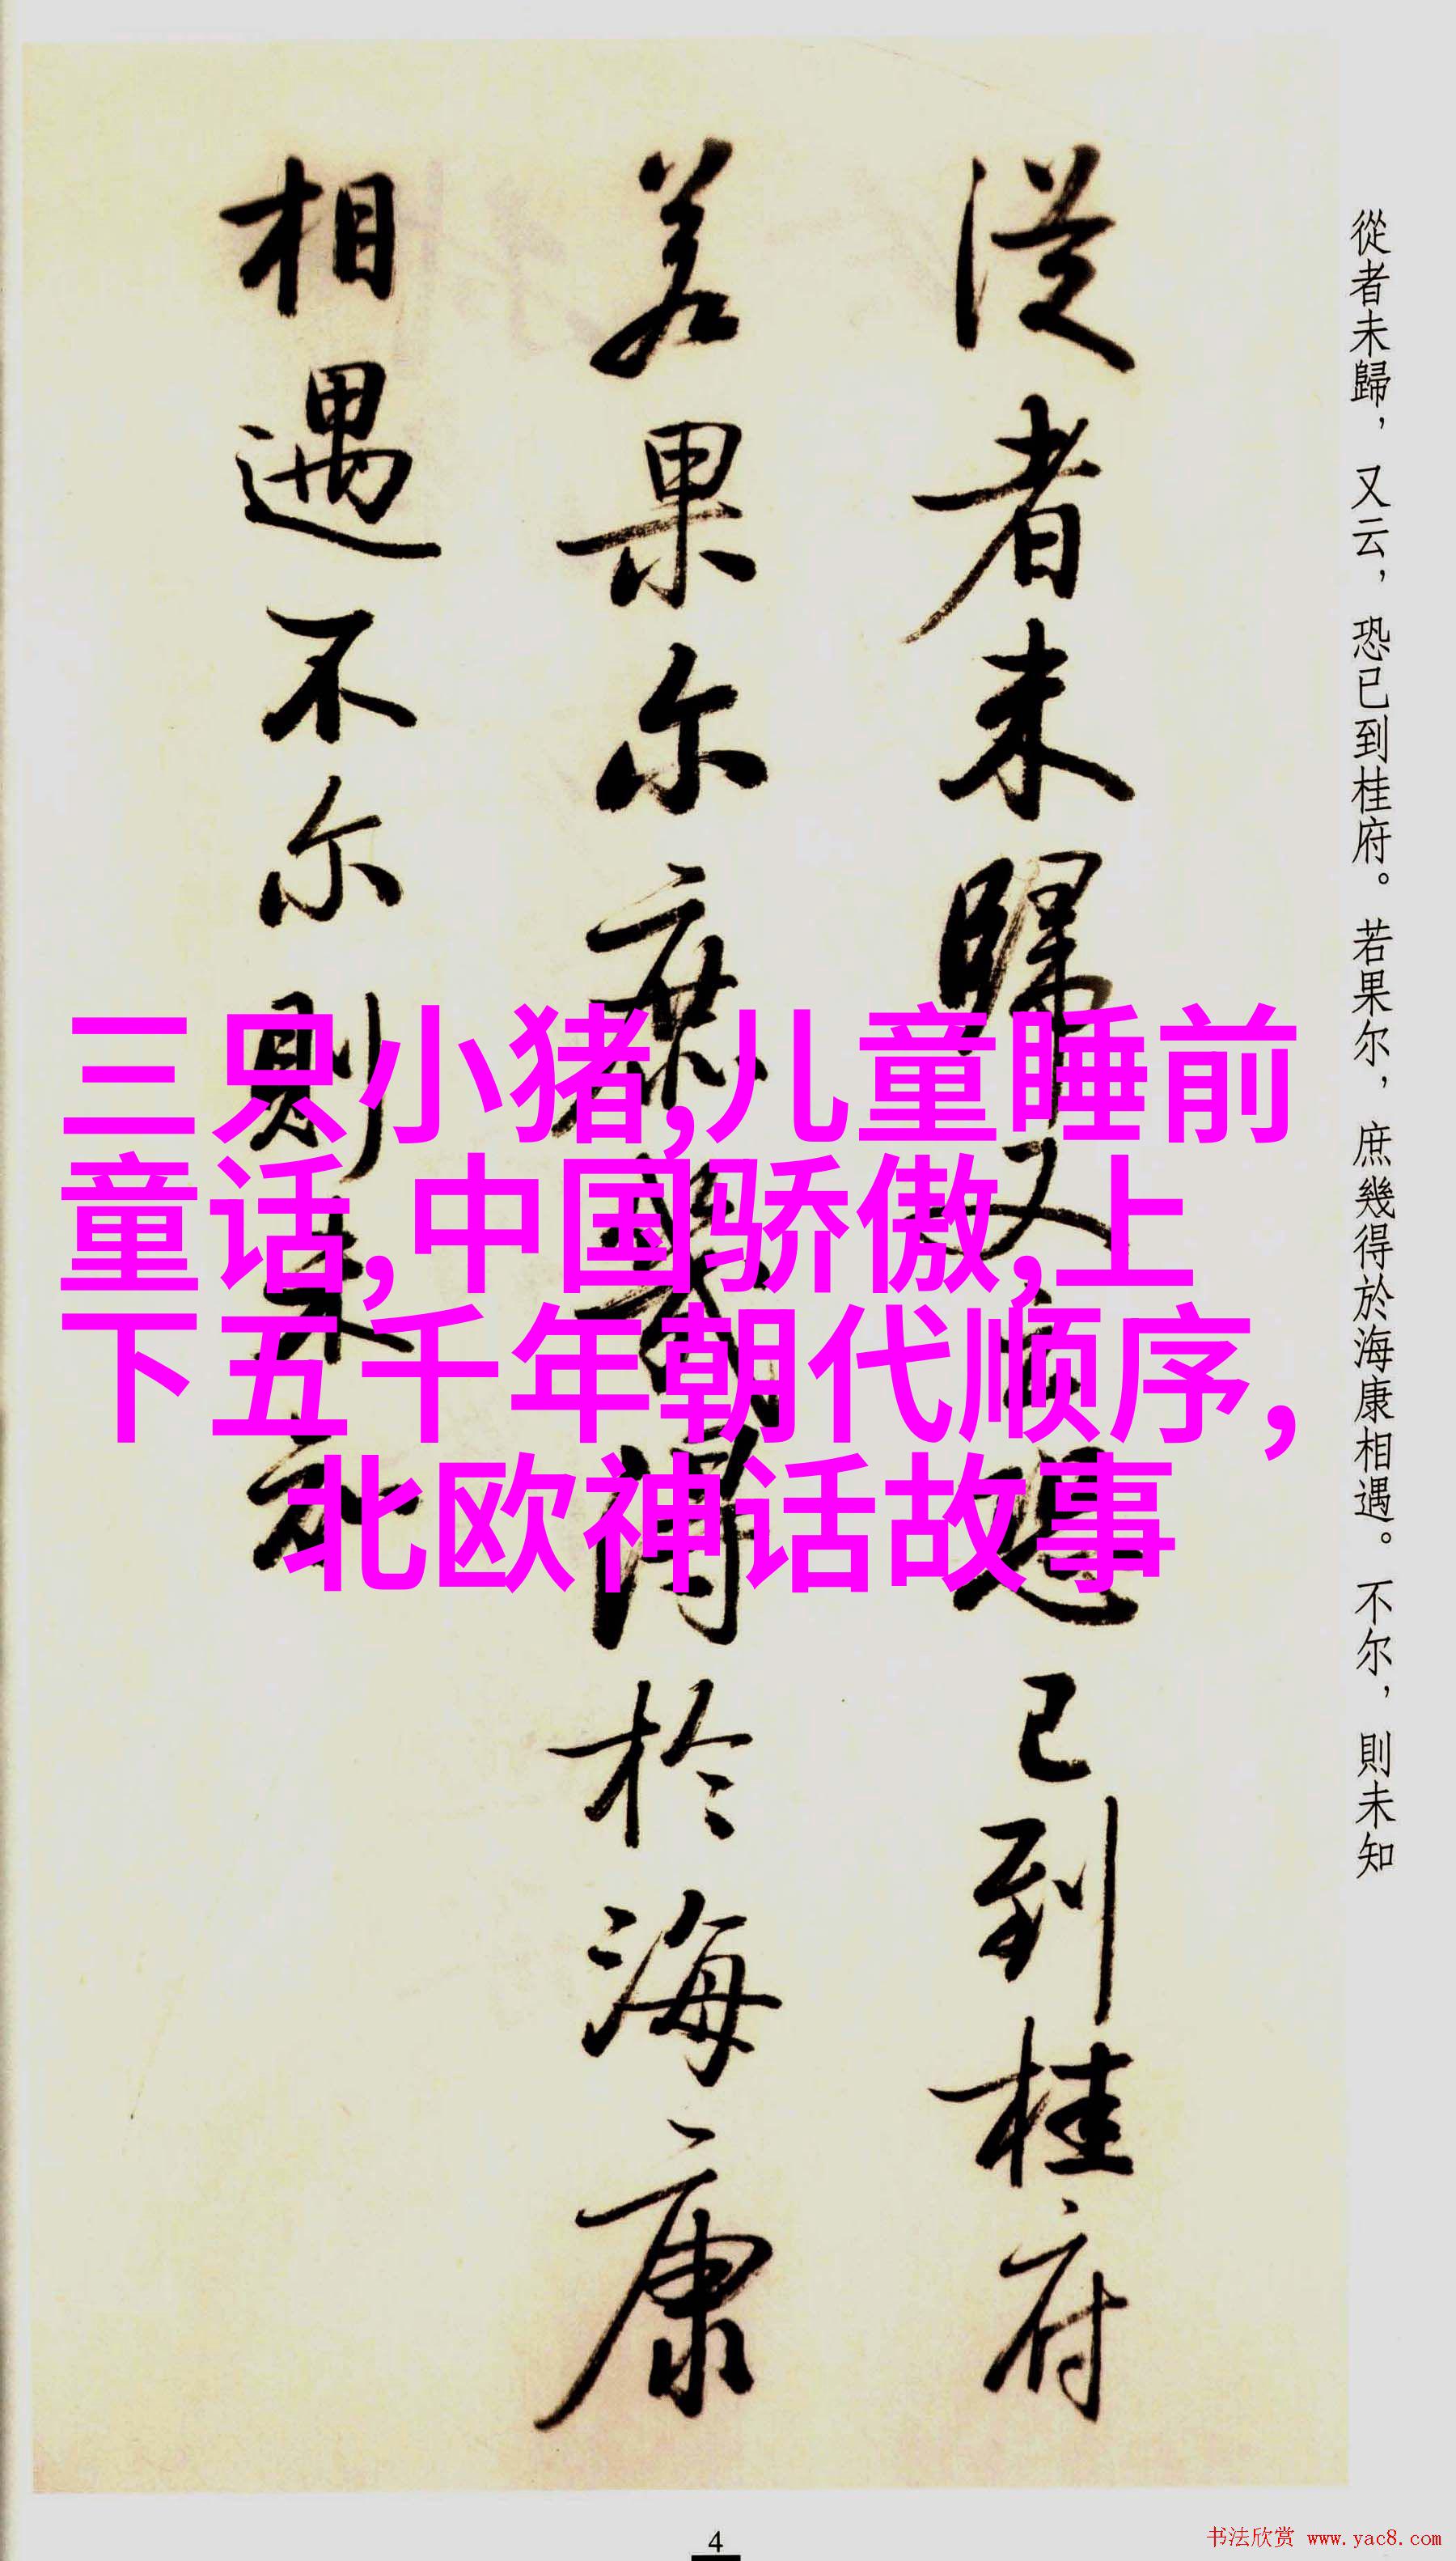 從者未歸，又云，恐已到桂府。若果尔，庶幾得於海康相遇。不尔，則未知
従者未歸又云恐已到桂府
若果尔庶幾得於海康
相遇不尔則未知
三只小猪,儿童睡前
童话,中国骄傲,上
下五千年朝代顺序,
北欧神话故事
4
书法欣赏 www.yac8.com